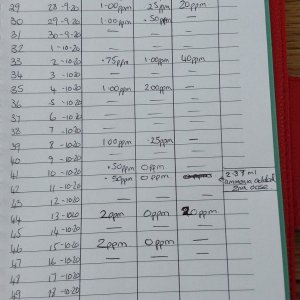 29 28-9-20 1.00ppm .25ppm 20ppm
30 29-9-20 1.00ppm .50ppm —
31 30-9-20 — — —
32 1-10-20 — — —
33 2-10-20 .75ppm 1.00ppm 40ppm
34 3-10-20 — — —
35 4-10-20 1.00ppm 2.00ppm —
36 5-10-20 — — —
37 6-10-20 — — —
38 7-10-20 — — —
39 8-10-20 1.00ppm .25ppm —
40 9-10-20 — — —
41 10-10-20 .50ppm 0ppm 2.37ml
42 11-10-20 .50ppm 0ppm ammonia added
43 12-10-20 — — — 2nd dose
44 13-10-20 2ppm 0ppm 20ppm
45 14-10-20 — — —
46 15-10-20 2ppm 0ppm —
47 16-10-20 — — —
48 17-10-20
49 18-10-20